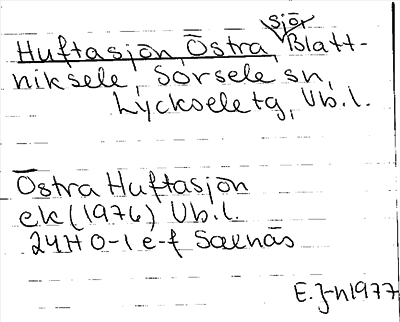 Huftasjön, Östra, sjör Blatt-
niksele, Sorsele sn,
Lycksele tg, Vb.l.
Östra Huftasjön
ek (1976) Vb.l.
24H 0-1 e-f Saxnäs
E. J-n 1977